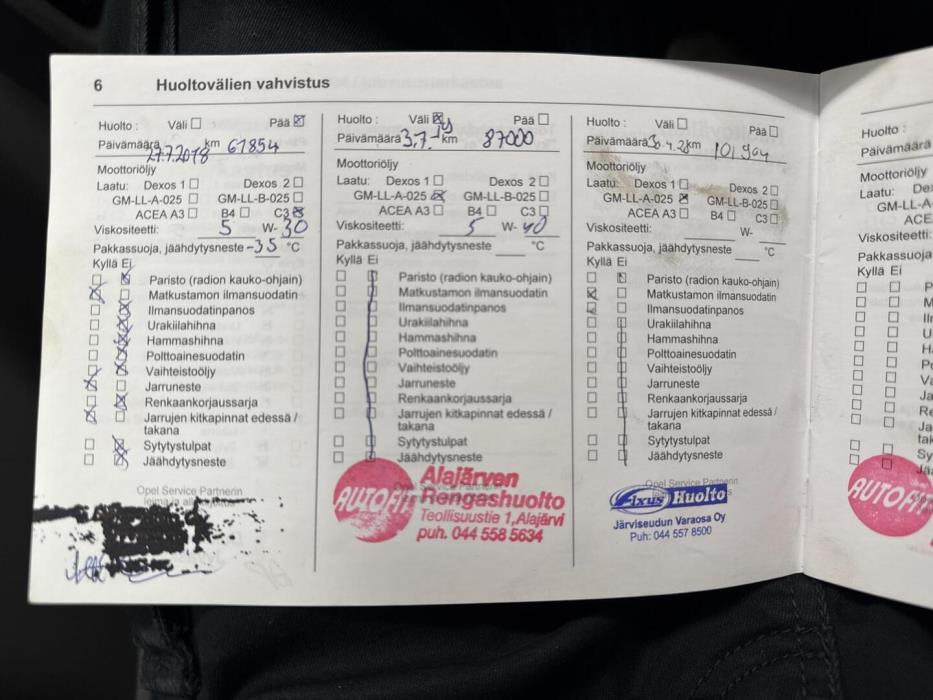 6 Huoltovälien vahvistus
Huolto : Väli Pää
Päivämäärä 27.7.2018 km 67854
Moottoriöljy
Laatu: Dexos 1 Dexos 2
GM-LL-A-025 GM-LL-B-025
ACEA A3 B4 C3
Viskositeetti: 5 W- 30
Pakkassuoja, jäähdytysneste -35 °C
Kyllä Ei
Paristo (radion kauko-ohjain)
Matkustamon ilmansuodatin
Ilmansuodatinpanos
Urakiilahihna
Hammashihna
Polttoainesuodatin
Vaihteistoöljy
Jarruneste
Renkaankorjaussarja
Jarrujen kitkapinnat edessä /
takana
Sytytystulpat
Jäähdytysneste
Opel Service Partnerin
Huolto : Väli Pää
Päivämäärä 3.7. 19 km 87000
Moottoriöljy
Laatu: Dexos 1 Dexos 2
GM-LL-A-025 GM-LL-B-025
ACEA A3 B4 C3
Viskositeetti: 5 W- 40
Pakkassuoja, jäähdytysneste °C
Kyllä Ei
Paristo (radion kauko-ohjain)
Matkustamon ilmansuodatin
Ilmansuodatinpanos
Urakiilahihna
Hammashihna
Polttoainesuodatin
Vaihteistoöljy
Jarruneste
Renkaankorjaussarja
Jarrujen kitkapinnat edessä /
takana
Sytytystulpat
Jäähdytysneste
AUTOFIT
Alajärven
Rengashuolto
Teollisuustie 1, Alajärvi
puh. 044 558 5634
Huolto : Väli Pää
Päivämäärä km 101904
Moottoriöljy
Laatu: Dexos 1 Dexos 2
GM-LL-A-025 GM-LL-B-025
ACEA A3 B4 C3
Viskositeetti: W-
Pakkassuoja, jäähdytysneste °C
Kyllä Ei
Paristo (radion kauko-ohjain)
Matkustamon ilmansuodatin
Ilmansuodatinpanos
Urakiilahihna
Hammashihna
Polttoainesuodatin
Vaihteistoöljy
Jarruneste
Renkaankorjaussarja
Jarrujen kitkapinnat edessä /
takana
Sytytystulpat
Jäähdytysneste
Opel Service Partnerin
Fixus Huolto
Järviseudun Varaosa Oy
Puh: 044 557 8500
Huolto :
Päivämäärä
Moottoriöljy
Laatu:
GM-LL-A
ACE
Viskositeetti:
Pakkassuoja
Kyllä Ei
AUTOFI